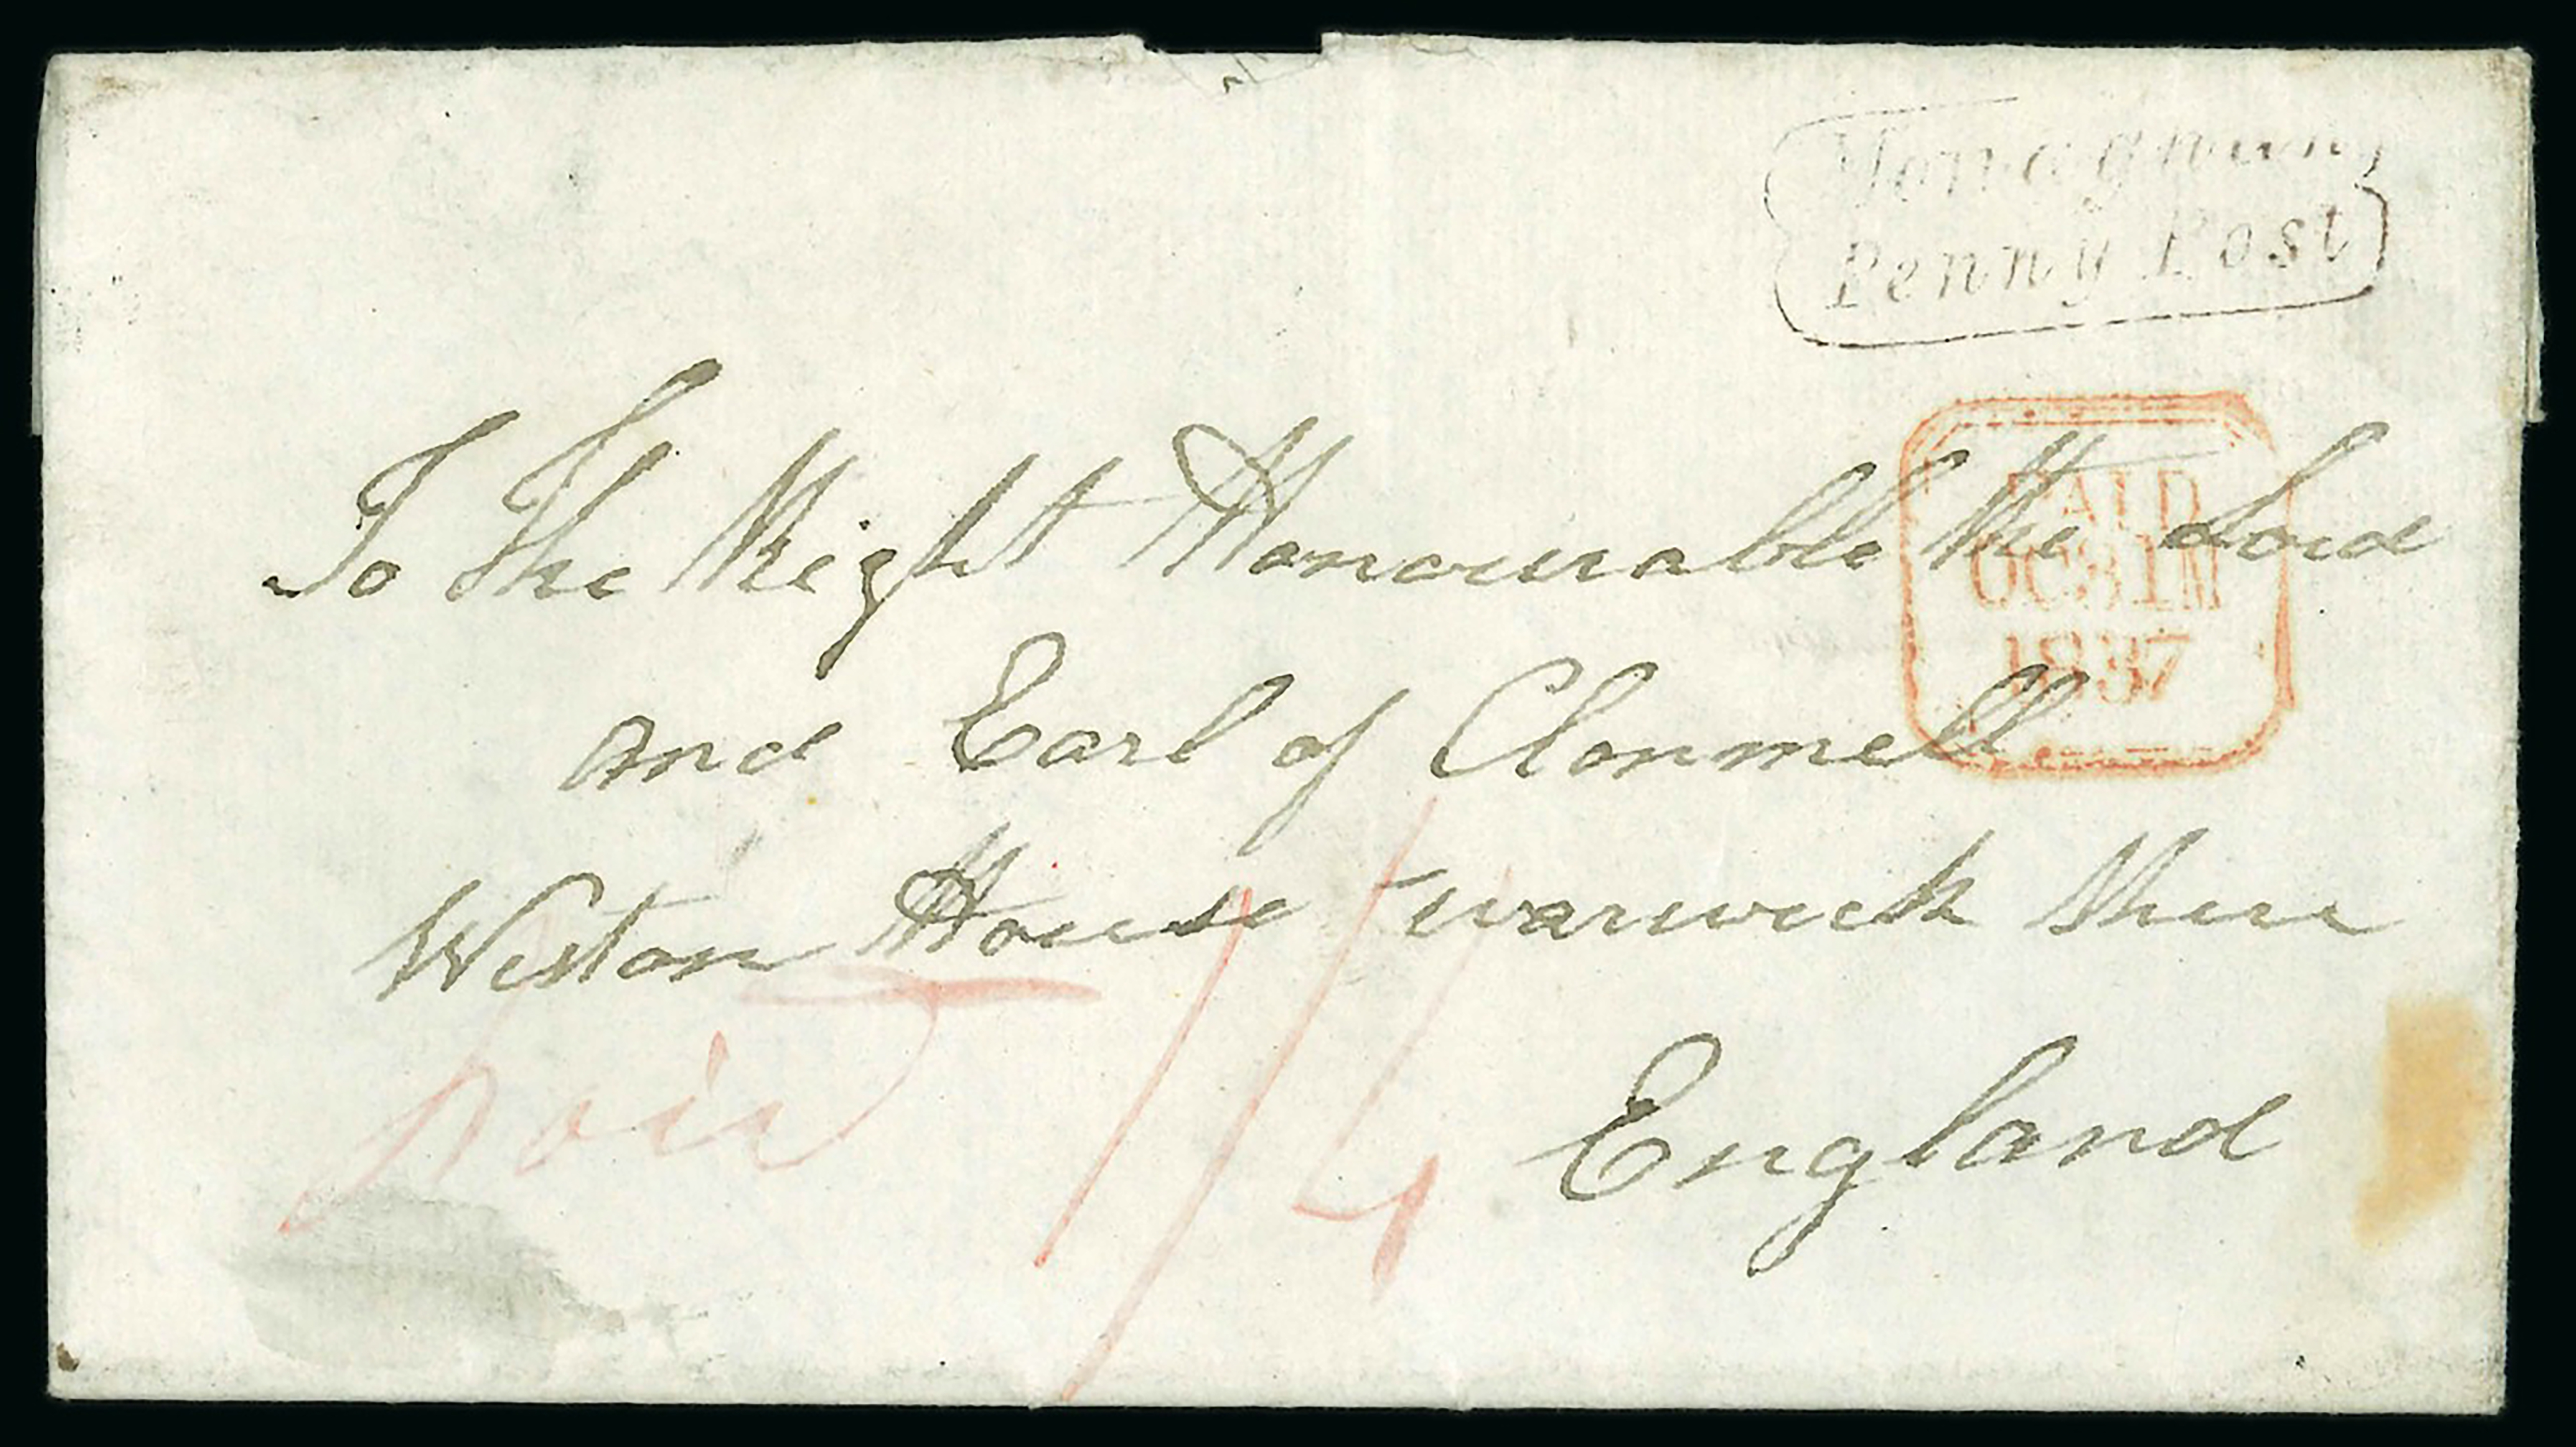 Penny Post
PAID
OC31M
1837
To The Right Honourable the Lord
and Earl of Clonmell
Weston House warwick Shire
England
paid 1/4